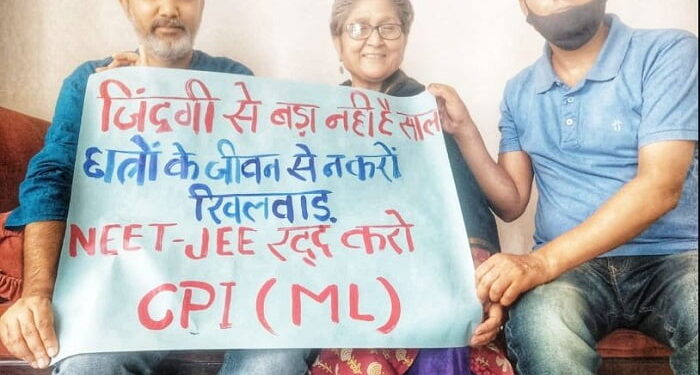 ज़िंदगी से बड़ा नहीं है साल
छात्रों के जीवन से न करों
खिलवाड़
NEET-JEE रद्द करो
CPI (ML)